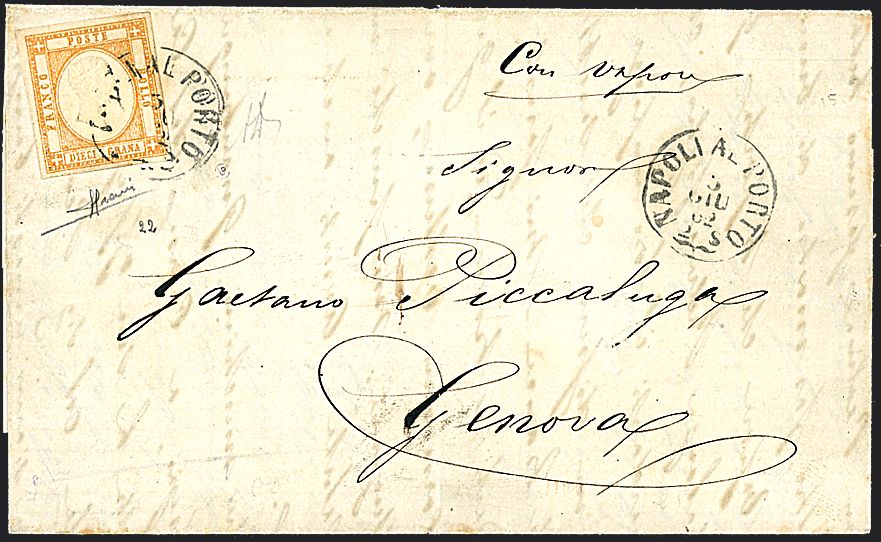 POSTE
FRANCO
BOLLO
DIECI GRANA
NAL PORTO
Con vapore
Signor
NAPOLI AL PORTO
GIU
62
22
15
Gaetano Piccaluga
Genova